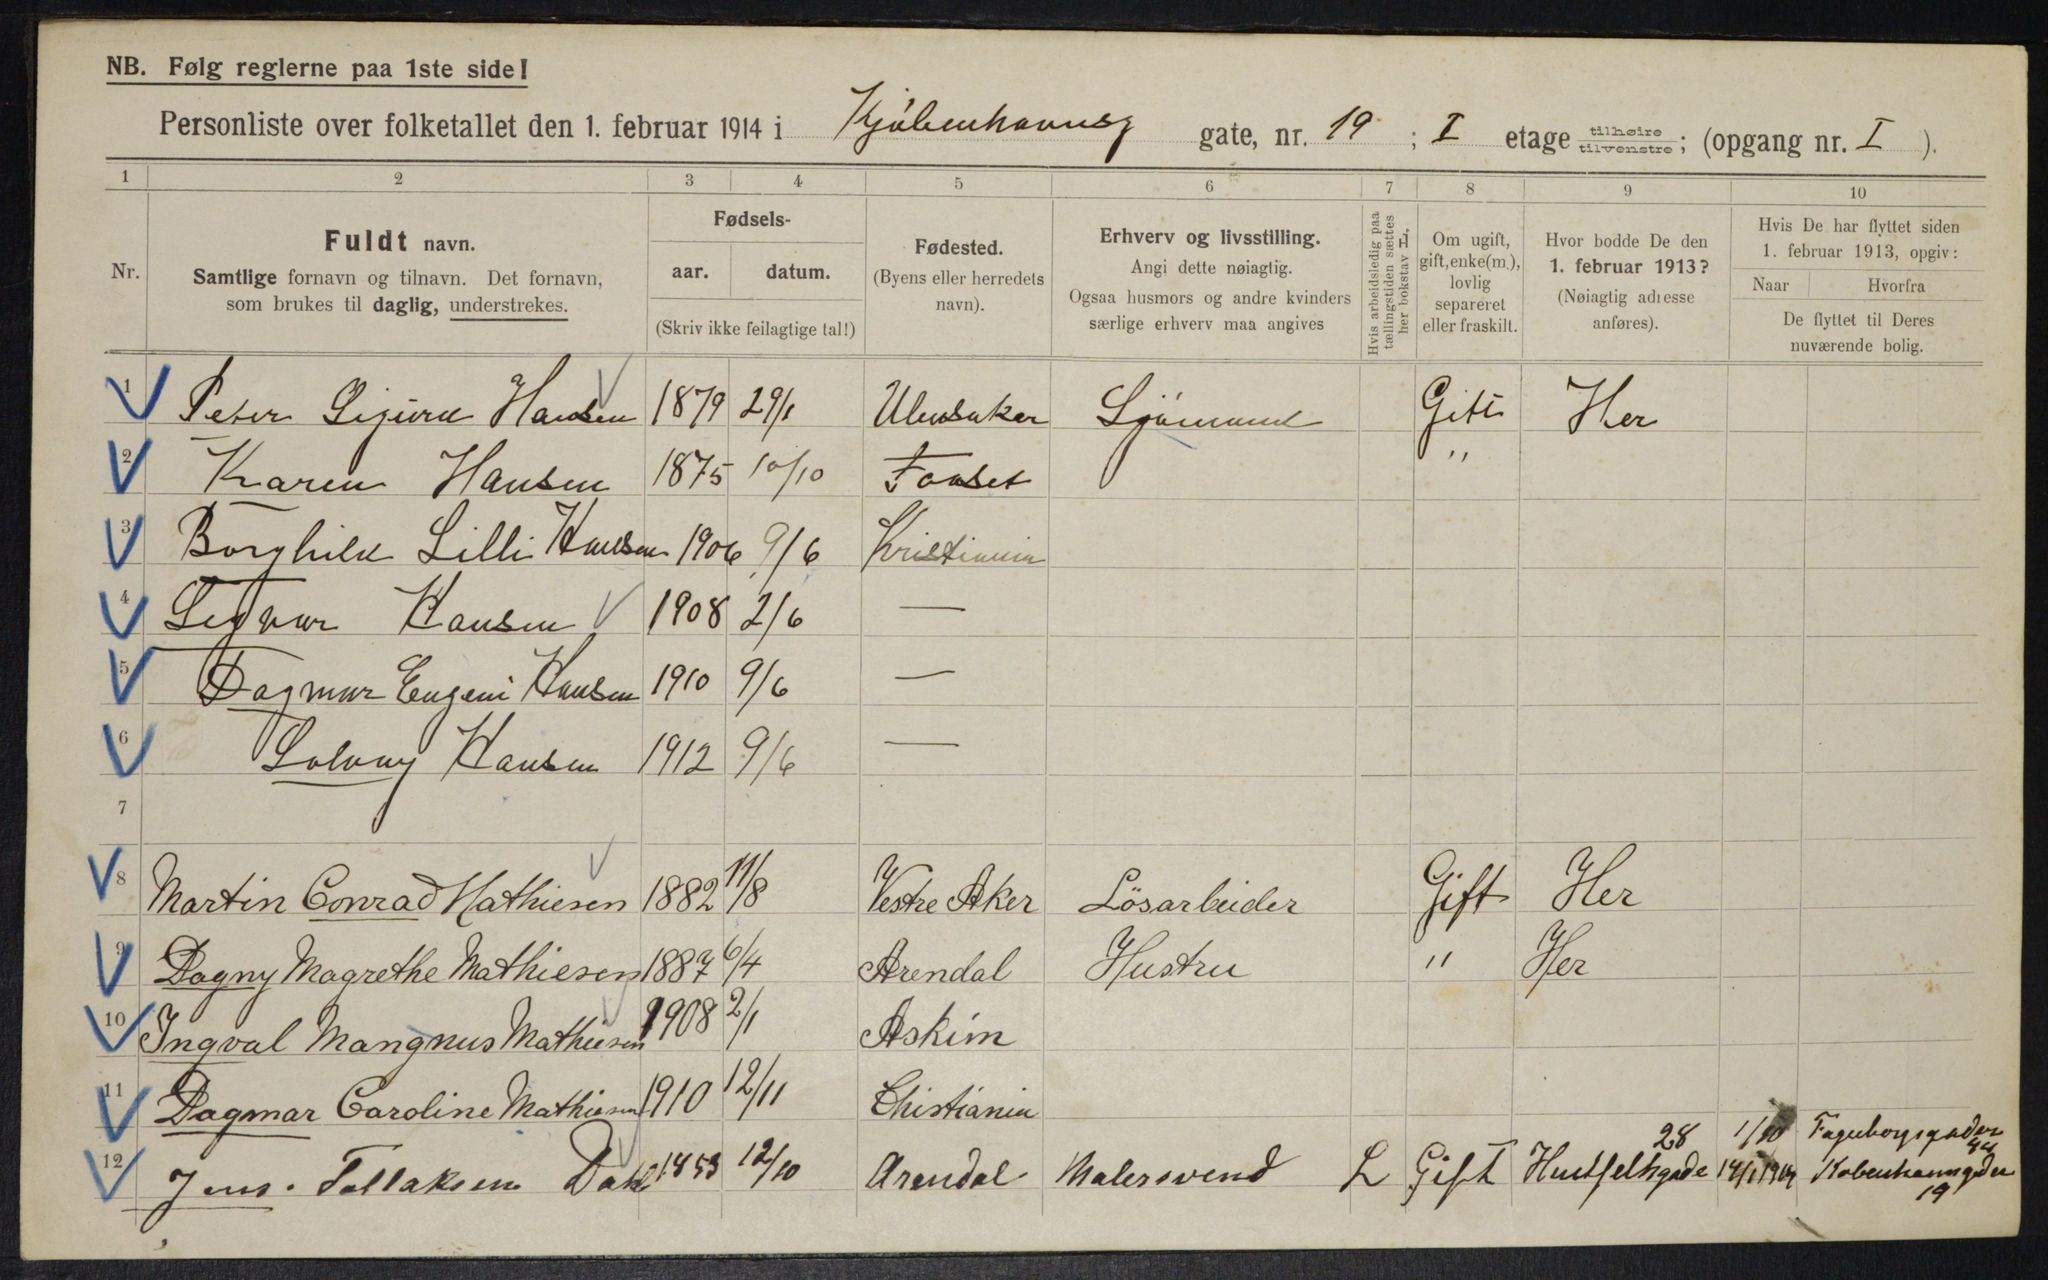 NB. Følg reglerne paa 1ste side!
Personliste over folketallet den 1. februar 1914 i Kjøbenhavnsg gate, nr. 19 ; I etage tilhøire tilvenstre ; (opgang nr. I ).
1 2 3 4 5 6 7 8 9 10
Nr.
Fuldt navn.
Samtlige fornavn og tilnavn. Det fornavn,
som brukes til daglig, understrekes.
Fødsels-
aar. datum.
(Skriv ikke feilagtige tal!)
Fødested.
(Byens eller herredets
navn).
Erhverv og livsstilling.
Angi dette nøiagtig.
Ogsaa husmors og andre kvinders
særlige erhverv maa angives
Hvis arbeidsledig paa
tællingstiden sættes
her bokstav L,
Om ugift,
gift, enke(m.),
lovlig
separeret
eller fraskilt.
Hvor bodde De den
1. februar 1913?
(Nøiagtig adresse
anføres).
Hvis De har flyttet siden
1. februar 1913, opgiv:
Naar Hvorfra
De flyttet til Deres
nuværende bolig.
1 Peter Sigurd Hansen 1879 29/1 Ulensaker Sjömand Gift Her
2 Karen Hansen 1875 10/10 Faaset "
3 Borghild Lilli Hansen 1906 9/6 Kristiania
4 Sigvar Hansen 1908 2/6 —
5 Dagmar Eugeni Hansen 1910 9/6 —
6 Solvay Hansen 1912 9/6 —
7
8 Martin Conrad Mathiesen 1882 11/8 Vestre Aker Lösarbeider Gift Her
9 Dagny Magrethe Mathiesen 1887 6/4 Arendal Hustru " Her
10 Ingval Mangnus Mathiesen 1908 2/1 Askim
11 Dagmar Caroline Mathiesen 1910 12/11 Chistiania
12 Jens Tallaksen Dahl 1853 12/10 Arendal Malersvend L Gift Huitfeltsgade 28 1/10 Fageborgsgaden 44
14/1 1914 Kobenhavnsgaden 19